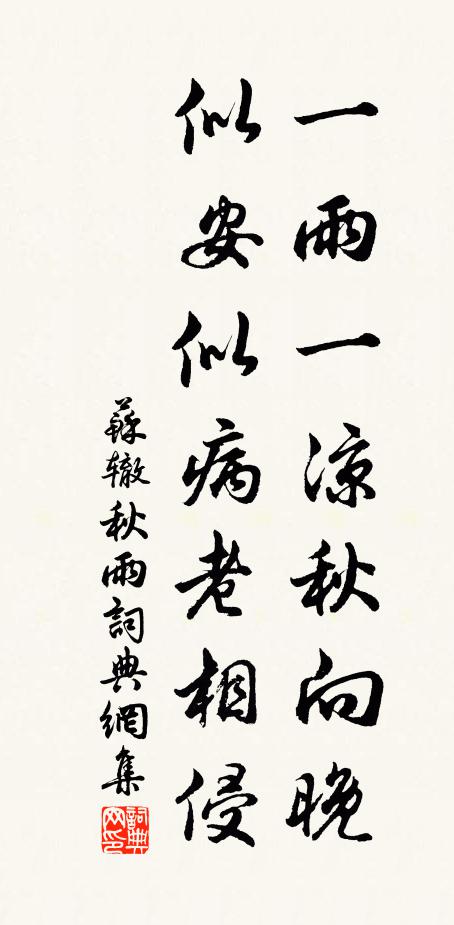 一雨一涼秋向晚
似安似病老相侵
蘇辙秋雨詞典網集
詞典网印